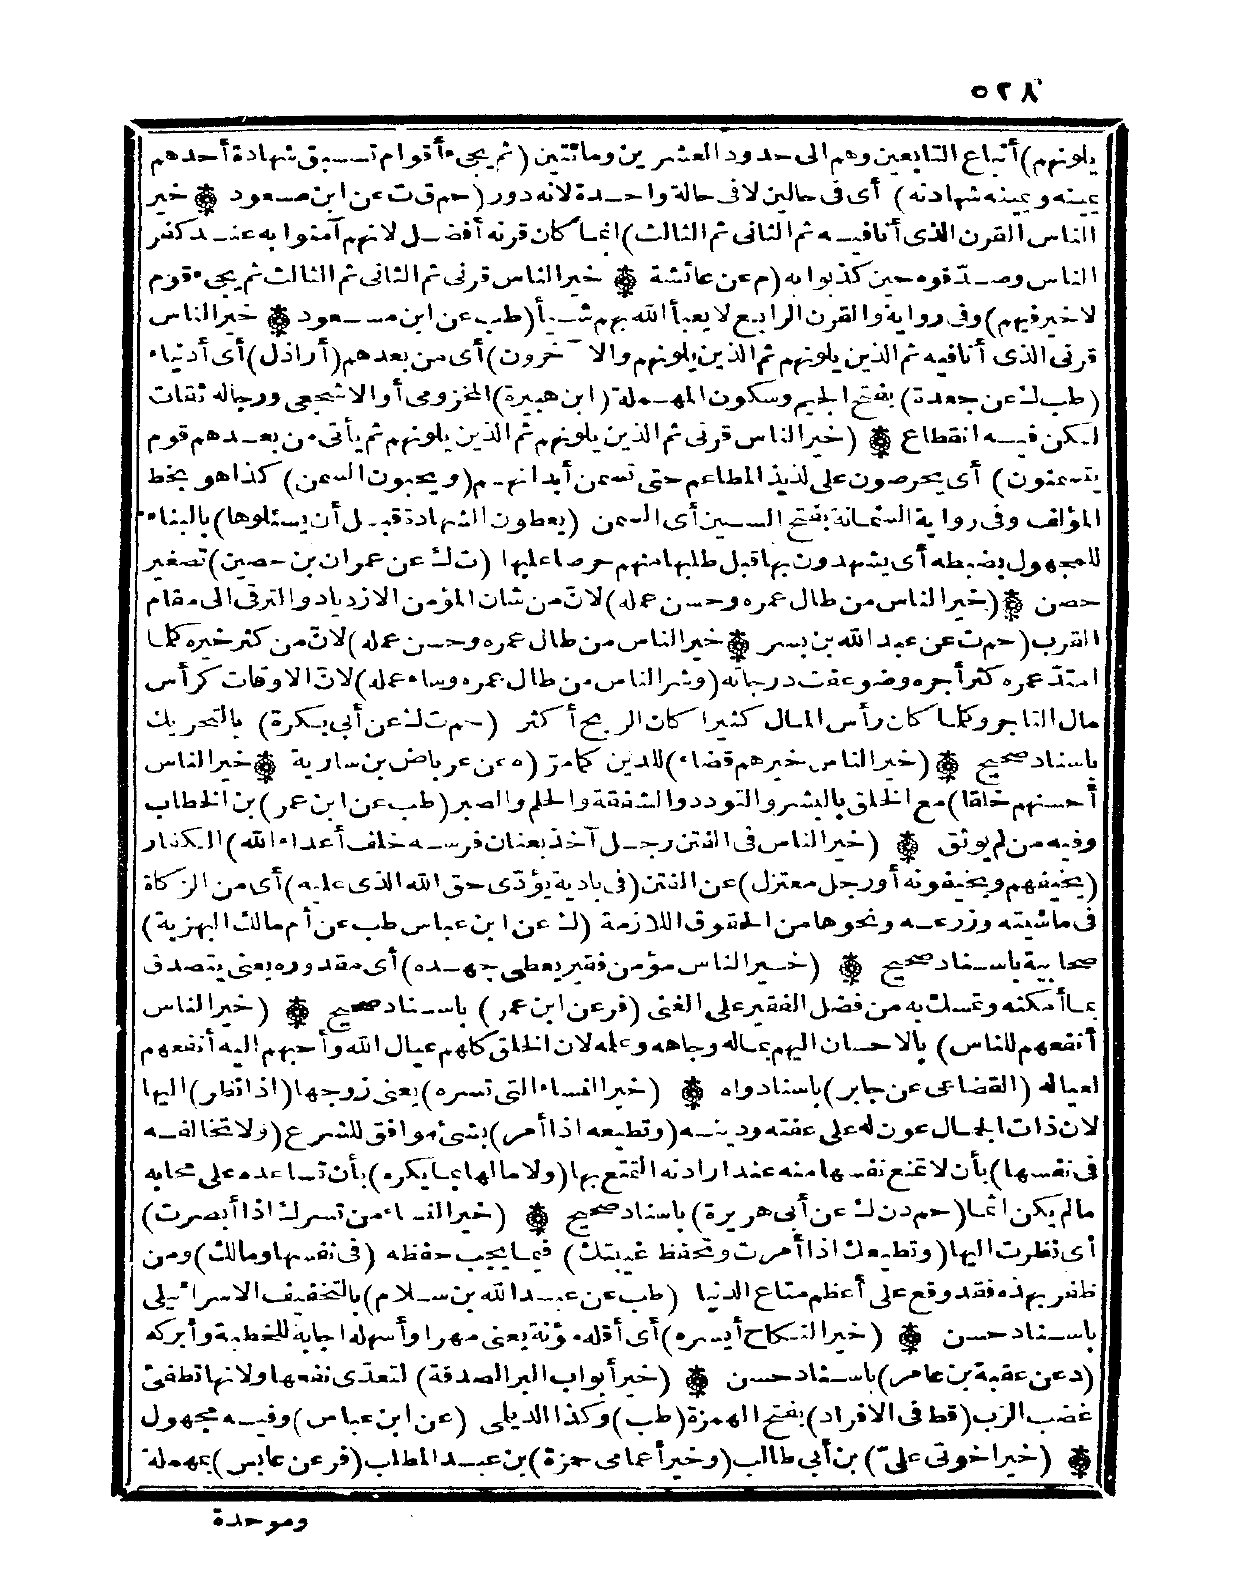 ٥٢٨
يلونهم) أتباع التابعين وهم الى حدود العشرين ومائتين (ثم يجىء أقوام تسبق شهادة أحدهم
يمينه ويمينه شهادته) أى فى حالين لا فى حالة واحدة لانه دور (حم ق ت عن ابن مسعود ۞ خير
الناس القرن الذى أنا فيه ثم الثانى ثم الثالث) انما كان قرنه أفضل لانهم آمنوا به عند كفر
الناس وصدّقوه حين كذبوا به (م عن عائشة ۞ خير الناس قرنى ثم الثانى ثم الثالث ثم يجىء قوم
لا خير فيهم) وفى رواية والقرن الرابع لا يعبأ الله بهم شيأ (طب عن ابن مسعود ۞ خير الناس
قرنى الذى أنا فيه ثم الذين يلونهم ثم الذين يلونهم والا خرون) أى من بعدهم (أراذل) أى أدنياء
(طب ك عن جعدة) بفتح الجيم وسكون المهملة (ابن هبيرة) المخزومى أو الاشجعى ورجاله ثقات
ليكن فيه انقطاع ۞ (خير الناس قرنى ثم الذين يلونهم ثم الذين يلونهم ثم يأتى من بعدهم قوم
يتسمنون) أى يحرصون على لذيذ المطاعم حتى تسمن أبدانهم (ويحبون السمن) كذا هو بخط
المؤلف وفى رواية السمانة بفتح السين أى السمن (يعطون الشهادة قبل أن يسئلوها) بالبناء
للمجهول بضبطه أى يشهدون بها قبل طلبها منهم حرصا عليها (ت ك عن عمران بن حصين) تصغير
حصن ۞ (خير الناس من طال عمره وحسن عمله) لانّ من شان المؤمن الازدياد والترقى الى مقام
القرب (حم ت عن عبد الله بن بسر ۞ خير الناس من طال عمره وحسن عمله) لانّ من كثر خيره كلما
امتدّ عمره كثر أجره وضوعفت درجاته (وشر الناس من طال عمره وساء عمله) لانّ الاوقات كرأس
مال التاجر وكلما كان رأس المال كثيرا كان الربح أكثر (حم ت ك عن أبى بكرة) بالتحريك
باسناد صحيح ۞ (خير الناس خيرهم قضاء) للدين كما مرّ (ه عن عرباض بن سارية ۞ خير الناس
أحسنهم خلقا) مع الخلق بالبشر والتودد والشفقة والحلم والصبر (طب عن ابن عمر) بن الخطاب
وفيه من لم يوثق ۞ (خير الناس فى الفتن رجل آخذ بعنان فرسه خلف أعداء الله) الكفار
(يخيفهم ويخيفونه أو رجل معتزل) عن الفتن (فى بادية يؤدّى حق الله الذى عليه) أى من الزكاة
فى ماشيته وزرعه ونحوها من الحقوق اللازمة (ك عن ابن عباس طب عن أم مالك البهزية)
صحابية باسناد صحيح ۞ (خير الناس مؤمن فقير يعطى جهده) أى مقدوره يعنى يتصدق
بما أمكنه وتمسك به من فضل الفقير على الغنى (فر عن ابن عمر) باسناد صحيح ۞ (خير الناس
أنفعهم للناس) بالاحسان اليهم بماله وجاهه وعلمه لان الخلق كلهم عيال الله وأحبهم اليه أنفعهم
لعياله (القضاعى عن جابر) باسناد واه ۞ (خير النساء التى تسره) يعنى زوجها (اذا نظر) اليها
لان ذات الجمال عون له على عفته ودينه (وتطيعه اذا أمر) بشئ موافق للشرع (ولا تخالفه
فى نفسها) بأن لا تمنع نفسها منه عند ارادته التمتع بها (ولا مالها بما يكره) بأن تساعده على محابه
مالم يكن اثما (حم د ن ك عن أبى هريرة) باسناد صحيح ۞ (خير النساء من تسرك اذا أبصرت)
أى نظرت اليها (وتطيعك اذا أمرت وتحفظ غيبتك) فيما يجب حفظه (فى نفسها ومالك) ومن
ظفر بهذه فقد وقع على أعظم متاع الدنيا (طب عن عبد الله بن سلام) بالتخفيف الاسرائيلى
باسناد حسن ۞ (خير النكاح أيسره) أى أقله مؤنة يعنى مهرا وأسهله اجابة للخطبة وأبركه
(د عن عقبة بن عامر) باسناد حسن ۞ (خير أبواب البر الصدقة) لتعدّى نفعها ولانها تطفئ
غضب الرّب (قط فى الافراد) بفتح الهمزة (طب) وكذا الديلى (عن ابن عباس) وفيه مجهول
۞ (خير اخوتى علىّ) بن أبى طالب (وخير أعمامى حمزة) بن عبد المطلب (فر عن عابس) بمهملة
وموحدة